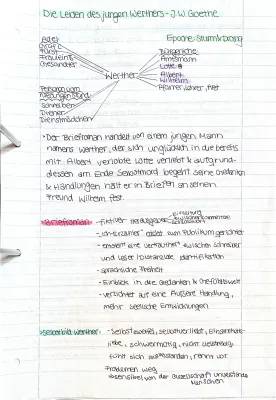 Die Leiden des jungen Werthers - J.W Goethe
Epoche: Sturm & Drang
Adel
Graf C
Fürst
Fräulein B
Gesandter
Bürgerliche
Amtsmann
Lotte
Albert
Wilhelm
Pfarrer, Lehrer, Arzt
Werther
Personen vom
niedrigen Stand
Schreiber
Diener
Dienstmädchen
• Der Briefroman handelt von einem jungen Mann
namens Werther, der sich unglücklich in die bereits
mit Albert verlobte Lotte verliebt & aufgrund
dessen am Ende Selbstmord begeht. Seine Gedanken
& Handlungen hält er in Briefen an seinen
Freund Wilhelm fest.
• Briefroman - fiktiver Herausgeber Einleitung
- "Ich-Erzähler" an zum Publikum gerichtet
- entsteht eine Vertrautheit zwischen Schreiber
und Leser Identifikation
- sprachliche Freiheit
- Einblick in die Gedanken & Gefühlswelt
- verzichtet auf eine äußere Handlung,
mehr seelische Entwicklungen
• Selbstbild Werther: - Selbstzweifel, Selbstverliebt, Einsamkeits-
liebe, schwermütig, nicht
fühlt sich rennt vor
Problemen weg
• sensibel, von der Gesellschaft
Menschen